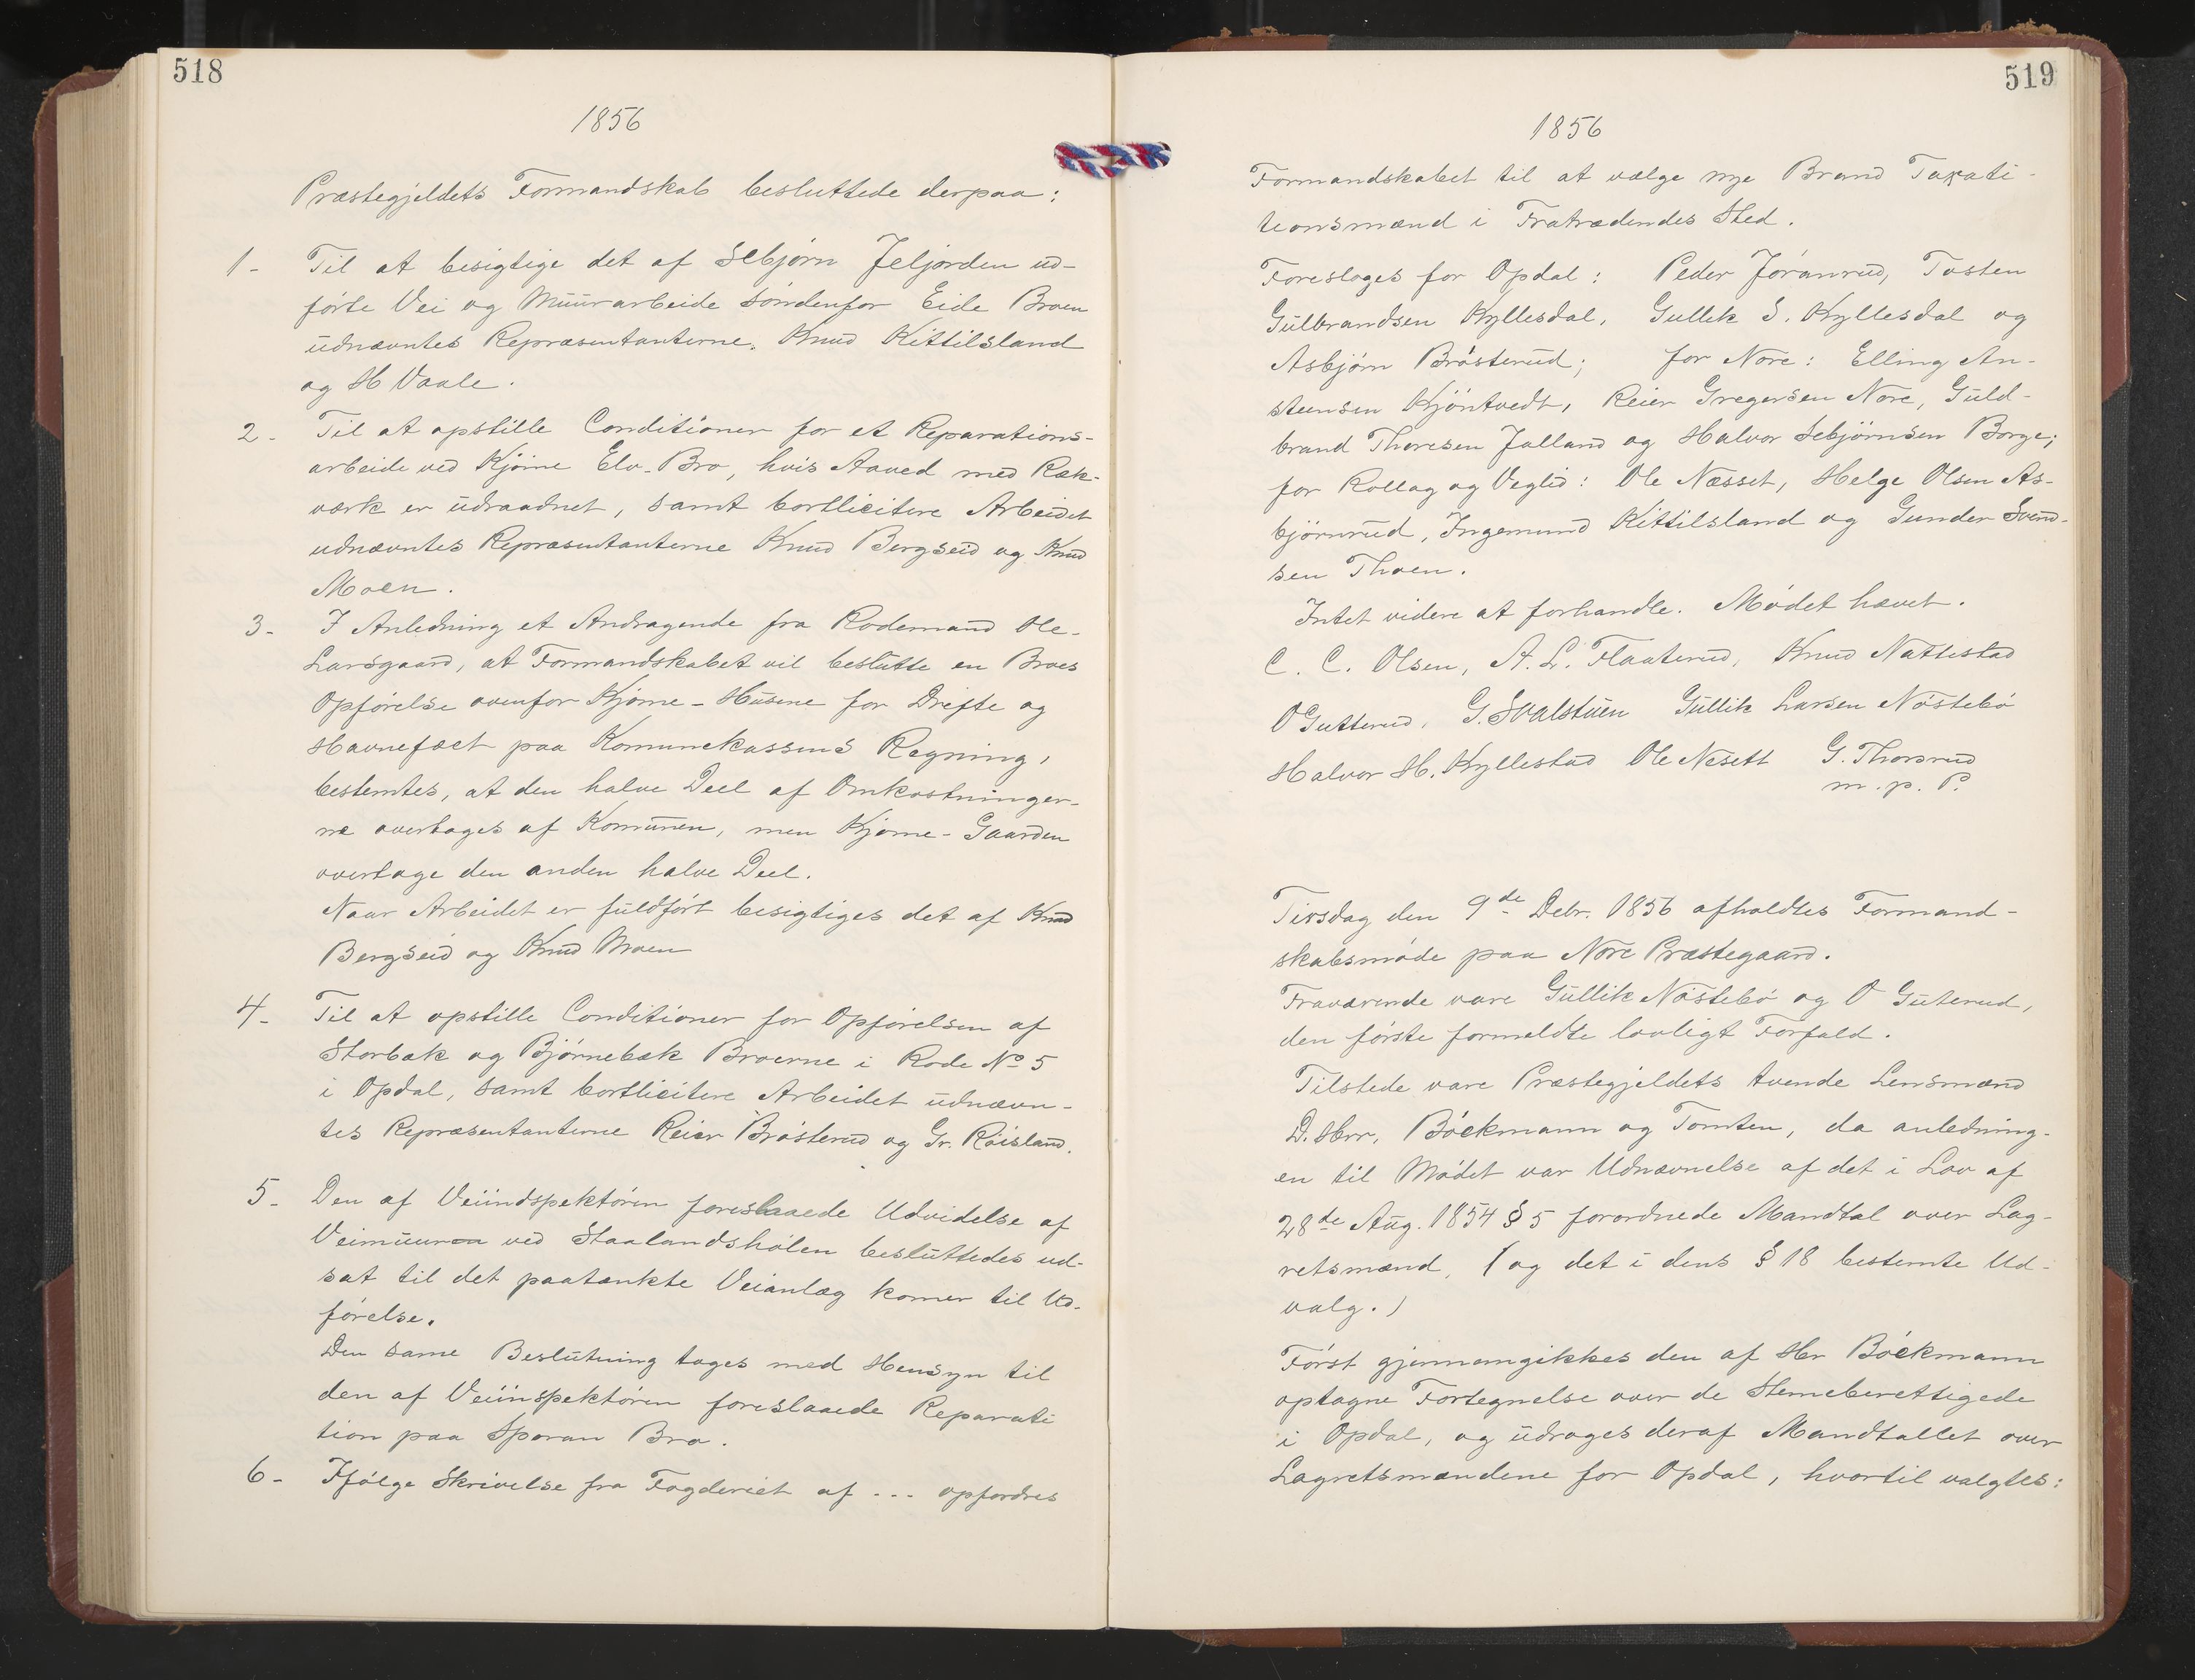 518
1856
Præstegjeldets Formandskab besluttede derpaa:
1- Til at besigtige det af Sebjørn Jeljorden ud-
førte Vei og Muurarbeide søndenfor Eide Broen
udnævntes Repræsentanterne, Knud Kittilsland
og H Vaale.
2- Til at opstille Conditioner for et Reparations-
arbeide ved Kjøme Elv-Bro, hvis Aaved med Ræk-
værk er udraadnet, samt bortlicitere Arbeidet
udnævntes Repræsentanterne Knud Bergseid og Knud
Moen.
3- I Anledning et Andragende fra Rodemand Ole-
Larsgaard, at Formandskabet vil beslutte en Broes
Opførelse ovenfor Kjøme-Husene for Drifte og
Havnefæet paa Komunekassens Regning,
bestemtes, at den halve Deel af Omkostninger-
ne overtages af Komunen, men Kjøme-Gaarden
overtage den anden halve Deel.
Naar Arbeidet er fuldført besigtiges det af Knud
Bergseid og Knud Moen
4- Til at opstille Conditioner for Opførelsen af
Storbæk og Bjørnebæk Broerne i Rode No 5
i Opdal, samt bortlicitere Arbeidet udnævn-
tes Repræsentanterne Reier Brøsterud og Gr. Røisland.
5- Den af Veiindspektøren foreslaaede Udvidelse af
Veimuuren ved Staalandshølen besluttedes ud-
sat til det paatænkte Veianlæg komer til Ud-
førelse.
Den same Beslutning toges med Hensyn til
den af Veiinspektøren foreslaaede Reparati
tion paa Sporan Bro.
6- Ifølge Skrivelse fra Fogderiet af ... opfordres
519
1856
Formandskabet til at vælge nye Brand Taxati-
tionsmænd i Fratrædendes Sted.
Foresloges for Opdal: Peder Jøranrud, Tosten
Gulbrandsen Kyllesdal, Gullik S. Kyllesdal og
Asbjørn Brøsterud; for Nore: Elling An-
steensen Kjøntvedt, Reier Gregersen Nore, Guld-
brand Thoresen Jalland og Halvor Sebjørnsen Borge;
for Rollag og Veglid: Ole Næsset, Helge Olsen As-
bjørnrud, Ingemund Kittilsland og Gunder Svend-
sen Thoen.
Intet videre at forhandle. Mødet hævet.
C. C. Olsen, A. L. Flaaterud, Knud Nattestad
O Gutterud, G. Svalstuen Gullik Larsen Nøstebø
Halvor H. Kyllestad Ole Nesett G. Thorsrud
m. p. P.
Tirsdag den 9de Debr. 1856 afholdtes Formand-
skabsmøde paa Nore Præstegaard.
Fraværende vare Gullik Nøstebø og O Guterud,
den første formeldte lovligt Forfald.
Tilstede vare Præstegjeldets tvende Lensmænd
D. Hrr. Bøckmann og Tomten, da anledning-
en til Mødet var Udnævnelse af det i Lov af
28de Aug. 1854 § 5 forordnede Mandtal over Lag-
retsmænd, (og det i dens § 18 bestemte Ud-
valg.)
Først gjennemgikkes den af Hr Bøckmann
optagne Fortegnelse over de Stemeberettigede
i Opdal, og udroges deraf Mandtallet over
Lagretsmændene for Opdal, hvortil valgtes: